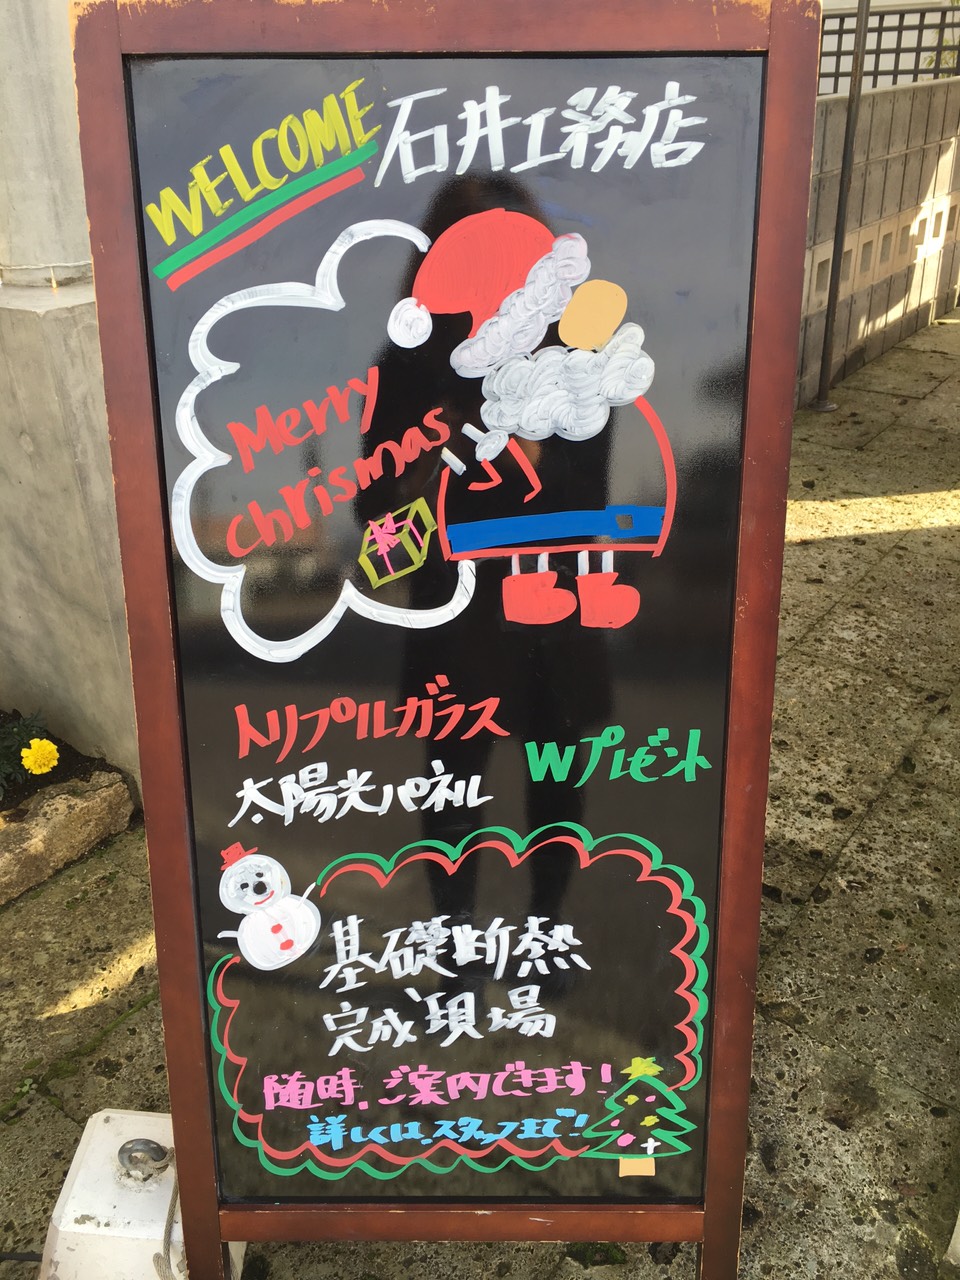 WELCOME 石井工務店
Merry
christmas
トリプルガラス
太陽光パネル
Wプレゼント
基礎断熱
完成現場
随時、ご案内できます!
詳しくは、スタッフまで!